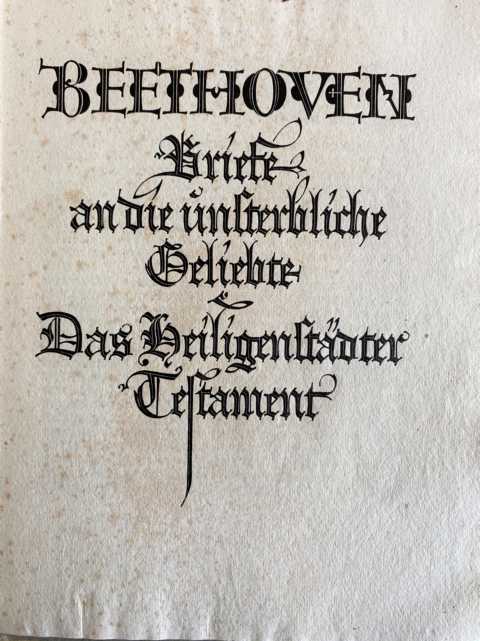 BEETHOVEN
Briefe
an die unſterbliche
Geliebte
Das Heiligenſtädter
Teſtament